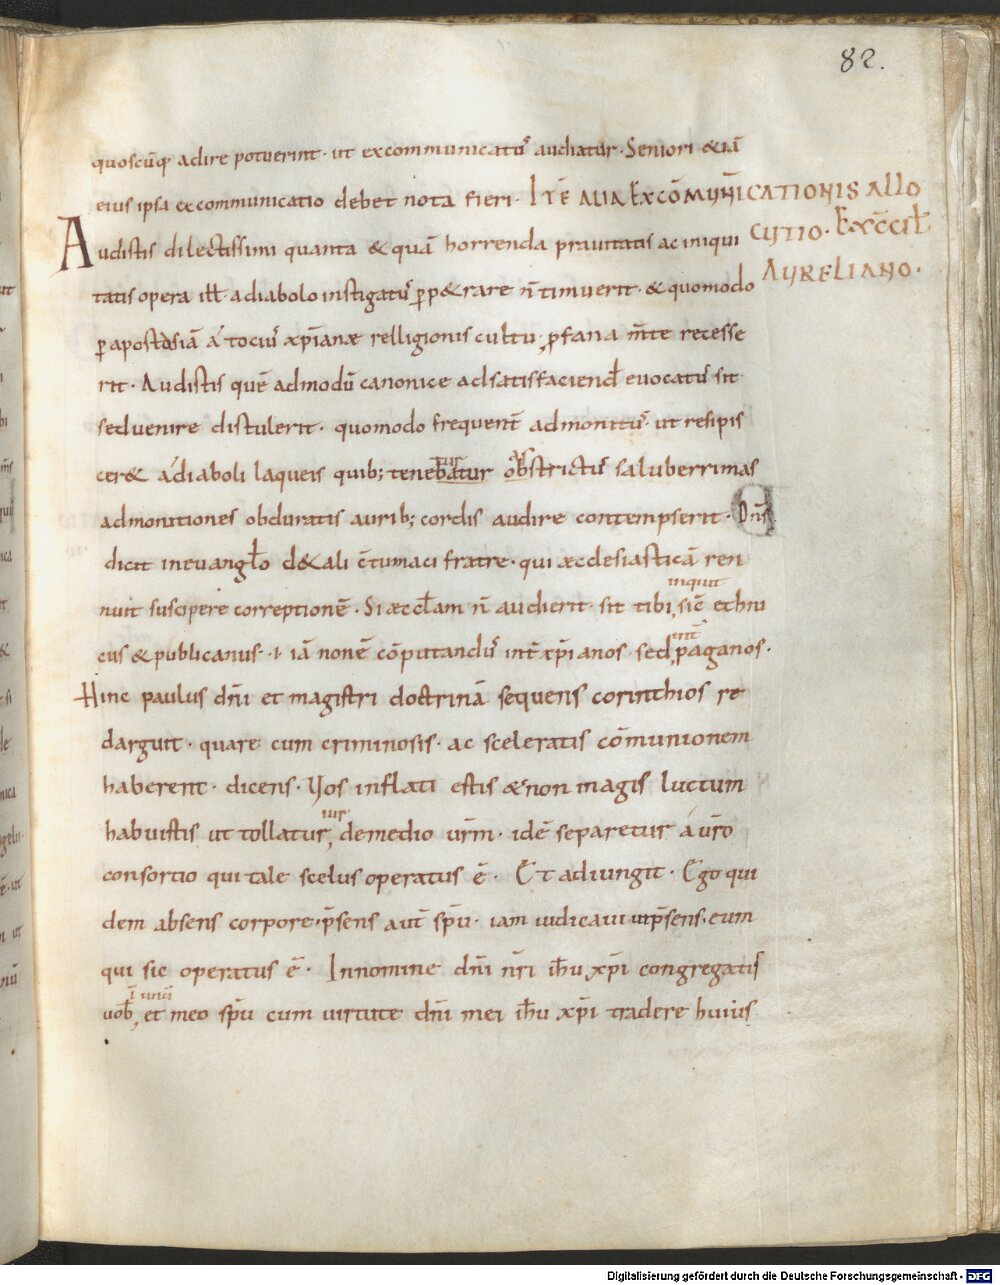 82.
quoscūq; adire potuerint· ut excommunicatus audiatur· Seniori &iā
eius ipsa excommunicatio debet nota fieri· ITĒ ALIA EXCŌMUNICATIONIS ALLO
CUTIO· EX CŌCIŁ
AURELIANO·
Audistis dilectissimi quanta & quā horrenda prauitatis ac iniqui
tatis opera ill̄· a diabolo instigatus p̄p&rare n̄ timuerit· & quomodo
p apostasiā á tocius xp̄ianæ relligionis cultu, pfana m̄te recesse
rit· Audistis quē admodū canonice ad satisfaciend̄ euocatus sit
sed uenire distulerit· quomodo frequent̄ admonitus· ut resipis
cer& á diaboli laqueis quib; tenebatur obstrictus saluberrimas
admonitiones obduratis aurib; cordis audire contempserit· Dn̄s
dicit in euangł̄o d& ali c̄tumaci fratre· qui æcclesiasticā ren
inquit
nuit suscipere correptionē· Si æccl̄am n̄ audierit· sit tibi, sic̄ ethni
int̄
cus & publicanus·i· iā non ē cōputandus int̄ xp̄ianos· sed, paganos·
Hinc paulus dn̄i et magistri doctrinā sequens corinthios re
darguit· quare cum criminosis· ac sceleratis cōmunionem
haberent· dicens· Uos inflati estis & non magis luctum
habuistis ut tollatur, de medio ur̄m· idē separetur á ur̄o
consortio qui tale scelus operatus ē· Et adiungit· Ego qui
dem absens corpore· p̄sens aut̄ sp̄u· iam iudicaui ut p̄sens· eum
qui sic operatus ē· In nomine dn̄i nr̄i ih̄u xp̄i congregatis
ī unū
uob̄, et meo sp̄u cum uirtute dn̄i mei ih̄u xp̄i tradere huius
Digitalisierung gefördert durch die Deutsche Forschungsgemeinschaft - DFG